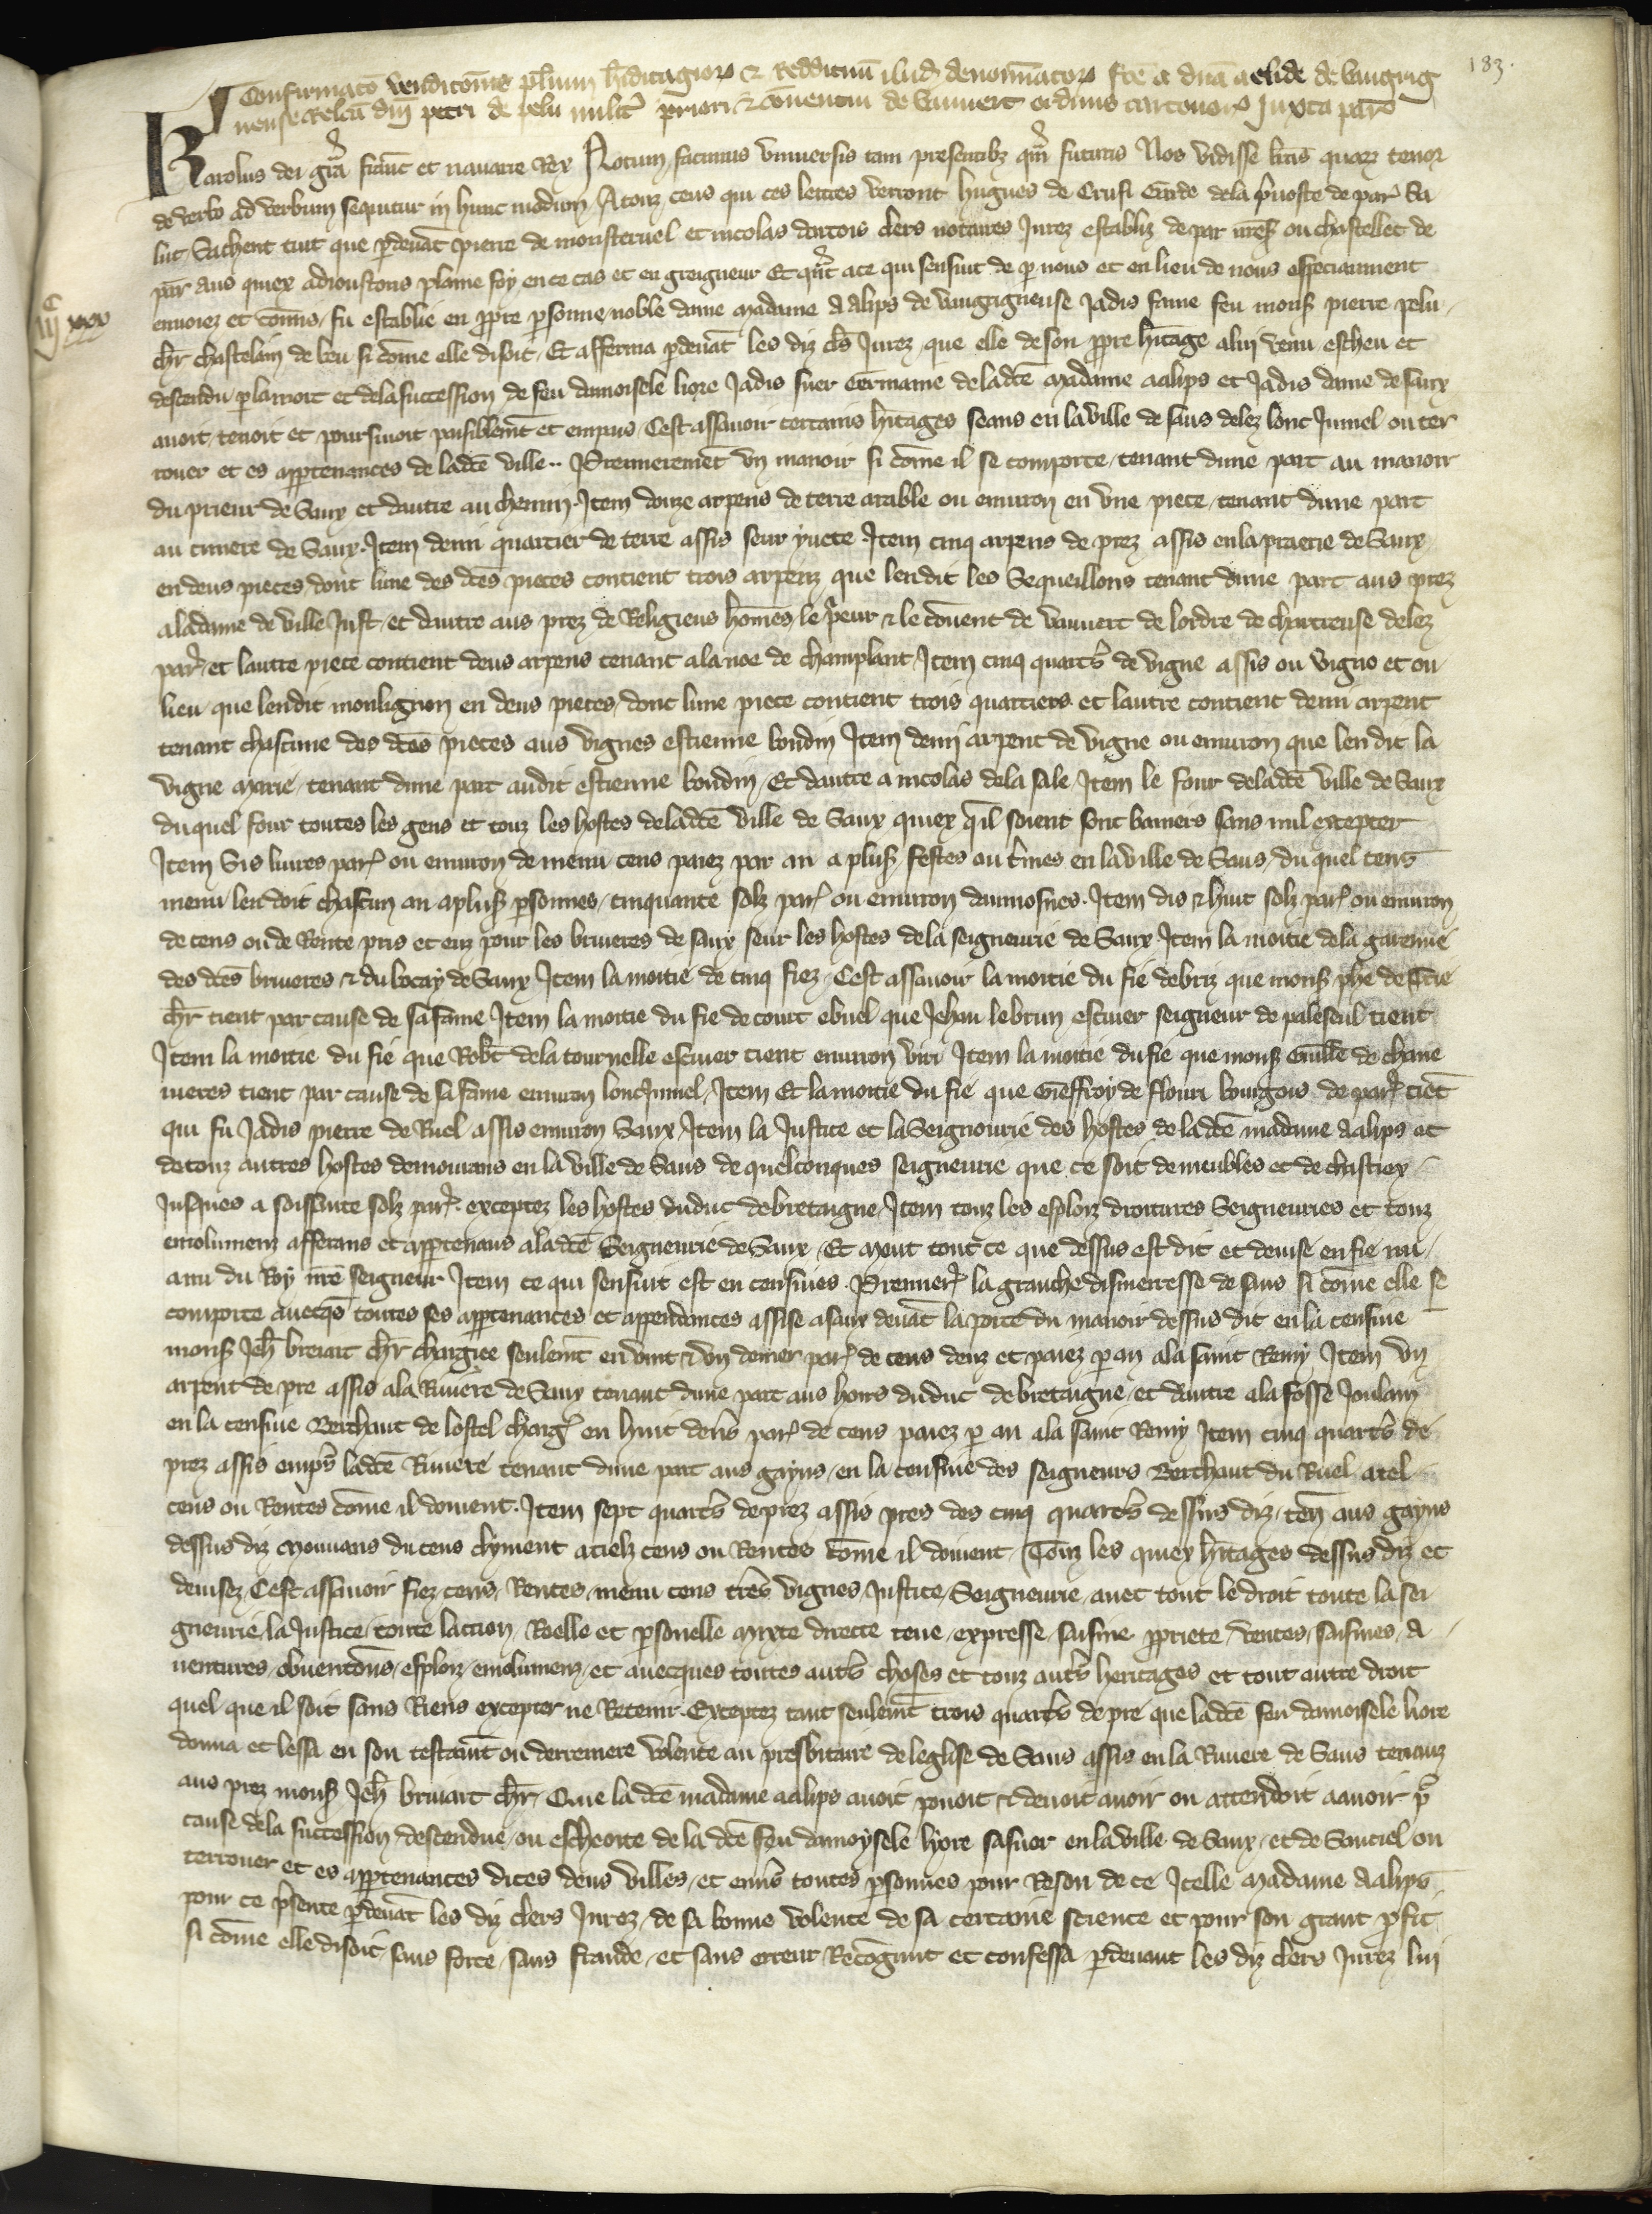 183.
Confirmatō venditōnis plium h̄editagioꝝ & Reddituū ibid denominatoꝝ fc̄e a dn̄a aelide de vaugrig
nense relc̄a dn̄i petri de pelu milit̄ priori & cōventui de vauvert ordinis cartonēsꝝ Juxta par̄
Karolus dei gr̄a franc̄ et navarre Rex Notum facimus universis tam presentibꝫ qm̄ futuris Nos vidisse lrās quaꝝ tenor
de verbo ad verbum sequitur in hunc modum A touz ceus qui ces lettres verront hugues de Crusi Garde de la p̄voste de par̄ sa
lut Sachent tuit que ꝑdevāt pierre de monsteruel et nicolas dartois clers notaires Jurez establiz de par nr̄eß ou chastellet de
par̄ aus quiex adioustons plaine foy en ce cas et en greigneur Et qn̄t ace qui sensuit de ꝑ nous et en lieu de nous especiaument
iiij͏ͨ xxxv
envoiez et cōmis, fu establie en ꝓpre ꝑsonne noble dame madame a alips de vaugrigneuse Jadis fame feu monß pierre pelu
chr̄ chastelain de leu si cōme elle disoit, Et afferma ꝑdevāt les diz cl̄s Jurez, que elle de son ꝓpre h̄itage a lui venu escheu et
descendu ꝑ la mort et de la succession de feu damoisele liore Jadis suer Germaine de ladc̄e madame aalips et Jadis dame de saux
avoit tenoit et poursivoit paisiblem̄t et empais, Cest assavoir certains h̄itages seans en la ville de saus delez lonc Jumel ou ter
rouer et es apꝑtenances de ladc̄e ville.. Premierem̄et vn manoir si cōme il se comporte, tenant dune part au manoir
du prieur de Saux et dautre au chemin. Item douze arpens de terre arable ou environ en vne piece, tenant dune part
au cimetere de Saux. Item demi quartier de terre assis seur yvete Item cinq arpens de prez assis en la praerie de Saux
en deus pieces, dont lune des dc̄es pieces contient trois arpenz que lendit les Sequeillons tenant dune part aus prez
a la dame de ville Just, et dautre aus prez de Religieus hōmes le p̄eur & le cōvent de vauvert de lordre de chartreuse delez
par̄, et lautre piece contient deus arpens tenant a la noe de champlant, Item cinq quart̄s de vigne assis ou vigno et ou
lieu que lendit monlignon en deus pieces, dont lune piece contient trois quartiers et lautre contient demi arpent
tenant chascune des dc̄es pieces aus vignes estienne boudin Item demi arpent de vigne ou environ que len dit la
vigne marie, tenant dune part audit estienne boudin, Et dautre a nicolas de la sale, Item le four de ladc̄e ville de Saux
du quel four toutes les gens et touz les hostes de ladc̄e ville de Saux quiex qil soient sont baniers sans nul excepter
Item Sis livres par̄ ou environ de menu cens paiez par an a plusß festes ou t̄mes en la ville de Saus, du quel cens
menu len doit chascun an a plusß ꝑsonnes, cinquante solz par̄ ou environ daumosnes. Item dis & huit solz par̄ ou environ
de cens ou de Rente pris et euz pour les bruieres de saux seur les hostes de la seigneurie de Saux Item la moitie de la garenne
des dc̄es bruieres & du bocay de Saux Item la moitie de cinq fiez, Cest assavoir la moitie du fie de briz que monß phē de Trie
chr̄ tient par cause de sa fame Item la moitie du fie de court ebuel que Jehan lebrun escuier seigneur de paleseul tient
Item la moitie du fie que Rob̄t de la tournelle escuier tient environ viri Item la moitie du fie que monß Guill̄e de chane
vieres tient par cause de sa fame environ lonc Jumel, Item Et la moitie du fie que Gieffroy de flouri bourgois de par̄ tiēt
qui fu Jadis pierre de Ruel assis environ Saux, Item la Justice et la Seigneurie des hostes de ladc̄e madame aalips et
de touz autres hostes demourans en la ville de Saus de quelconques seigneurie que ce soit de meubles et de chastiex
Jusques a soissante solz par̄. exceptez les hostes du duc de bretaigne, Item touz les esploiz droitures Seigneuries et touz
emolumenz afferans et apꝑtenans a ladc̄e Seigneurie de Saux, Et meut tout ce que dessus est dit et devise en fie nu
anu du Roy nr̄e seigneur Item ce qui sensuit est en censives. Premier̄ la granche disme resse de saus si cōme elle se
comporte avecq̄s toutes ses apꝑtenances et appendances assise a saux devāt la porte du manoir dessus dit en la censive
monß Jeh̄ bruiart chr̄ chargiee seulem̄t en vint & vn denier par̄ de cens deuz et paiez ꝑ an a la saint Remy Item vn
arpent de pre assis a la Riviere de Saux tenant dune part aus hoirs du duc de bretaigne, et dautre a la fosse Joulain
en la censive Berthaut de lostel charḡ en huit den̄s par̄ de cens paiez ꝑ an a la saint Remy Item cinq quart̄s de
prez assis emp̄s ladc̄e Riviere tenant dune part aus gayns, en la censive des seigneurs Berthaut du Ruel, a tel
cens ou Rentes cōme il doivent. Item sept quart̄s de prez assis pres des cinq quart̄s dessus diz, ten̄ aus gayns
dessus diz mouvans du cens clyment a tielz cens ou Rentes cōme il doivent, Touz les quiex h̄itages dessus diz et
devisez, Cest assavoir fiez, cens, Rentes, menu cens t̄res vignes, Justice, Seigneurie, avec tout le droit toute la sei
gneurie, la Justice, toute laction, Reelle et ꝑsonelle mixte directe teue, expresse, saisine ꝓpriete, ventes, saisines, a
ventures, obventōns, esploiz, emolumenz, et avecques toutes aut̄s choses et touz aut̄s heritages et tout autre droit
quel que il soit sans Riens excepter ne Retenir. Exceptez tant seulem̄t trois quart̄s de pre que ladc̄e feu damoisele liore
donna et lessa en son testam̄t ou derreniere volente au presbitaire de leglise de Saus assis en la Riviere de Saus tenanz
aus prez monß Jeh̄ bruiart chr̄, Que ladc̄e madame aalips avoit povoit & devoit avoir ou attendoit a avoir pͬ
cause de la succession descendue, ou escheoite de ladc̄e feu damoysele lyore sa suer en la ville de Saux, et de Sauciel ou
terrouer et es apꝑtenances dites deus villes, et env̄s toutes ꝑsonnes pour Reson de ce Icelle madame Aalips
pour ce p̄sente ꝑdevāt les diz clers Jurez, de sa bonne volente de sa certaine science et pour son grant ꝓfit
si cōme elle disoit, sans force, sans fraude, et sans erreur, Recōgnut et confessa ꝑdevant les diz clers Jurez lui